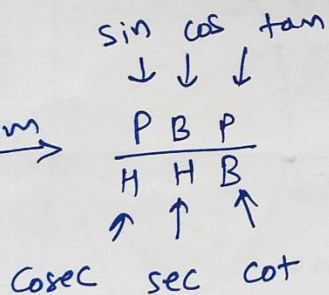 sin cos tan
m
P B P
H H B
Cosec sec cot